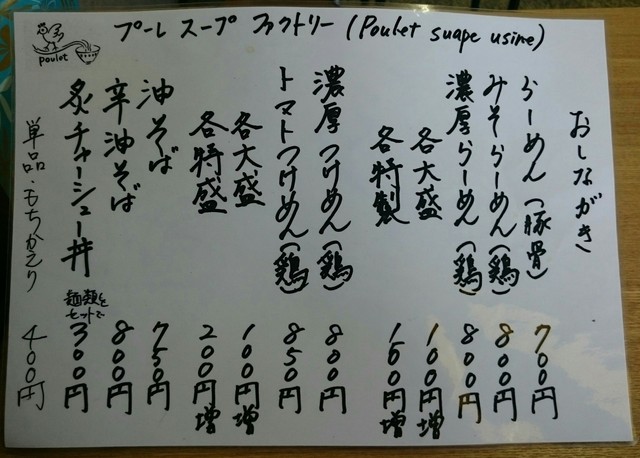 poulet
プーレスープファクトリー (Poulet suape usine)
おしながき
らーめん(豚骨) 700円
みそらーめん(鶏) 800円
濃厚らーめん(鶏) 800円
各大盛 100円増
各特製 160円増
濃厚つけめん(鶏) 800円
トマトつけめん(鶏) 850円
各大盛 100円増
各特盛 200円増
油そば 750円
辛油そば 800円
炙チャーシュー丼 麺類とセットで 300円
単品・もちかえり 400円